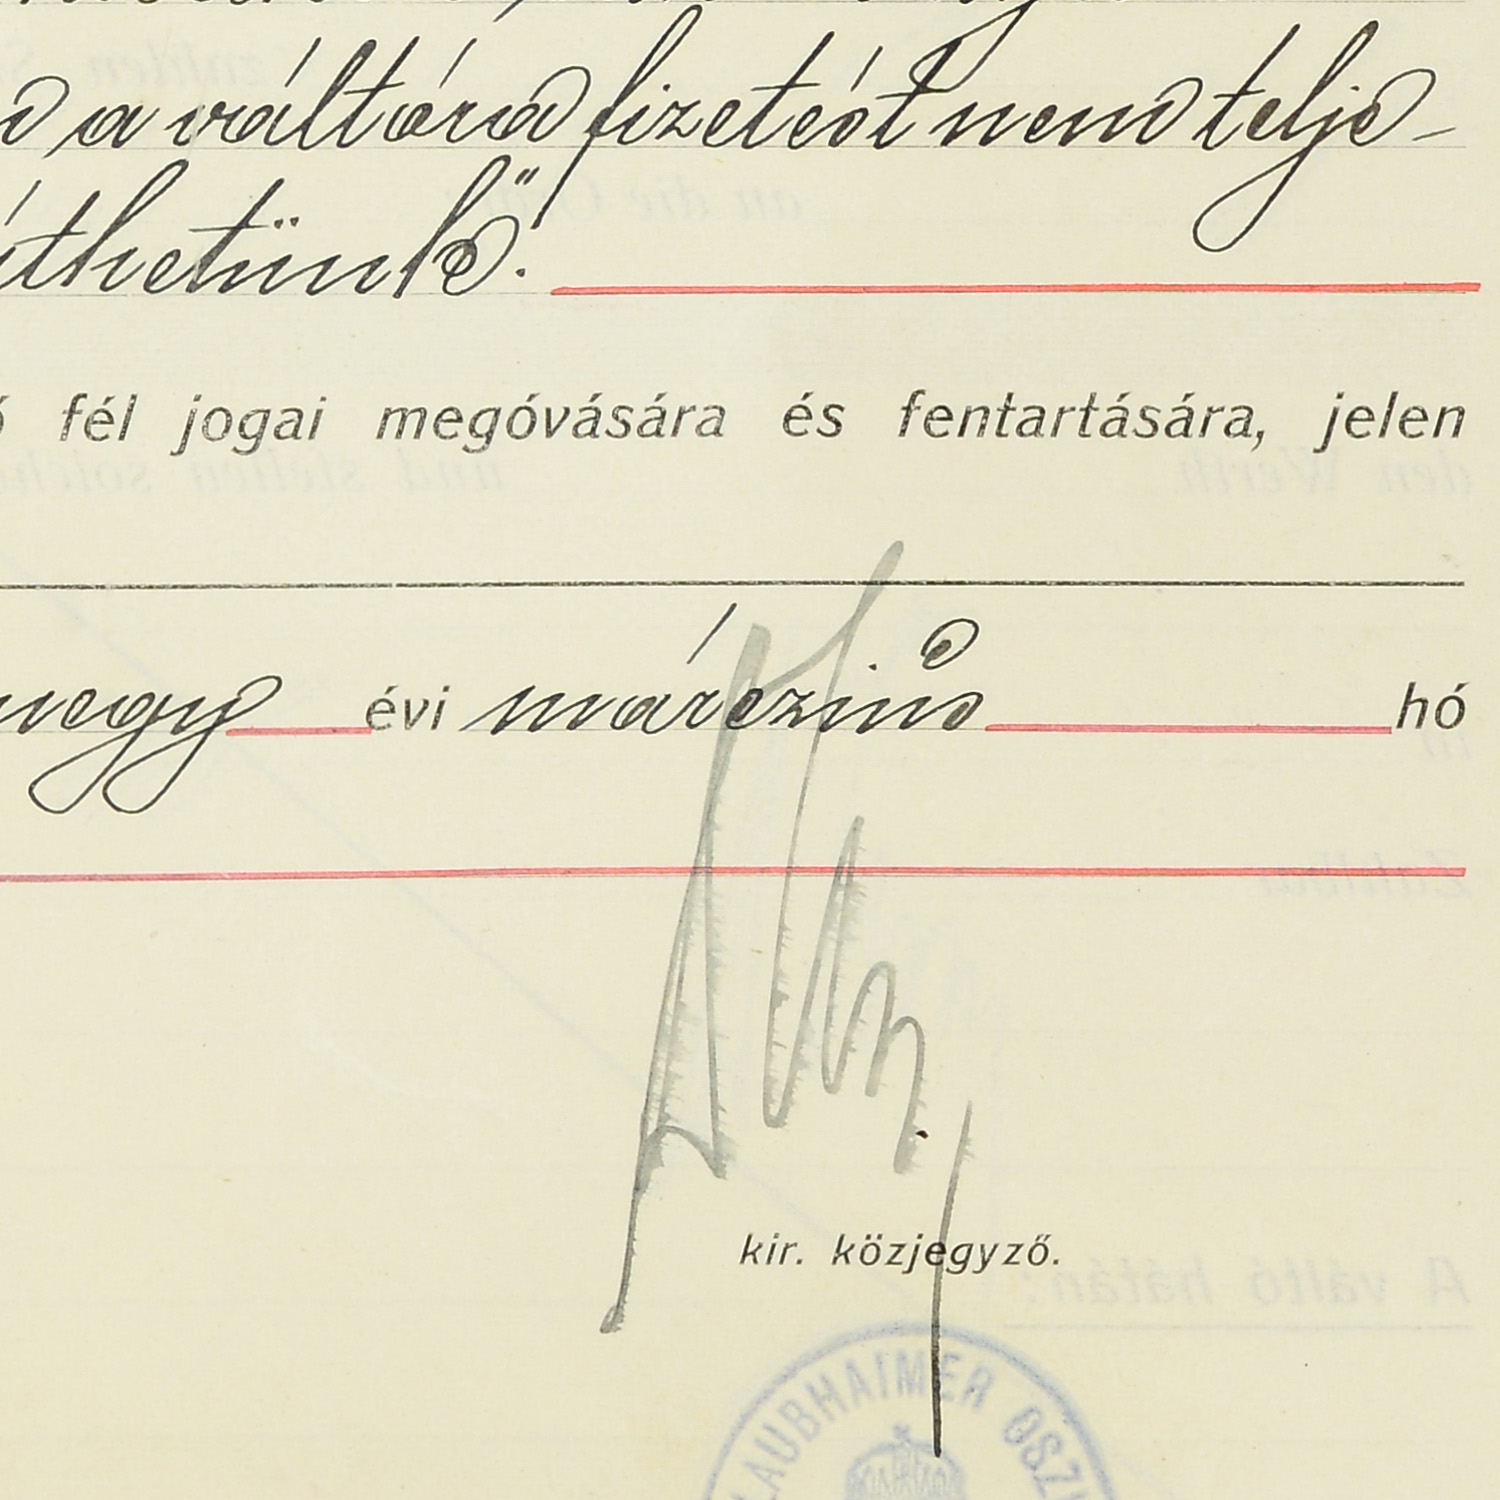 a váltóra fizetést nem telje-
íthetünk".
fél jogai megóvására és fentartására, jelen
negy évi márczius hó
kir. közjegyző.
LAUBHAIMER OSZ
A váltó hátán: